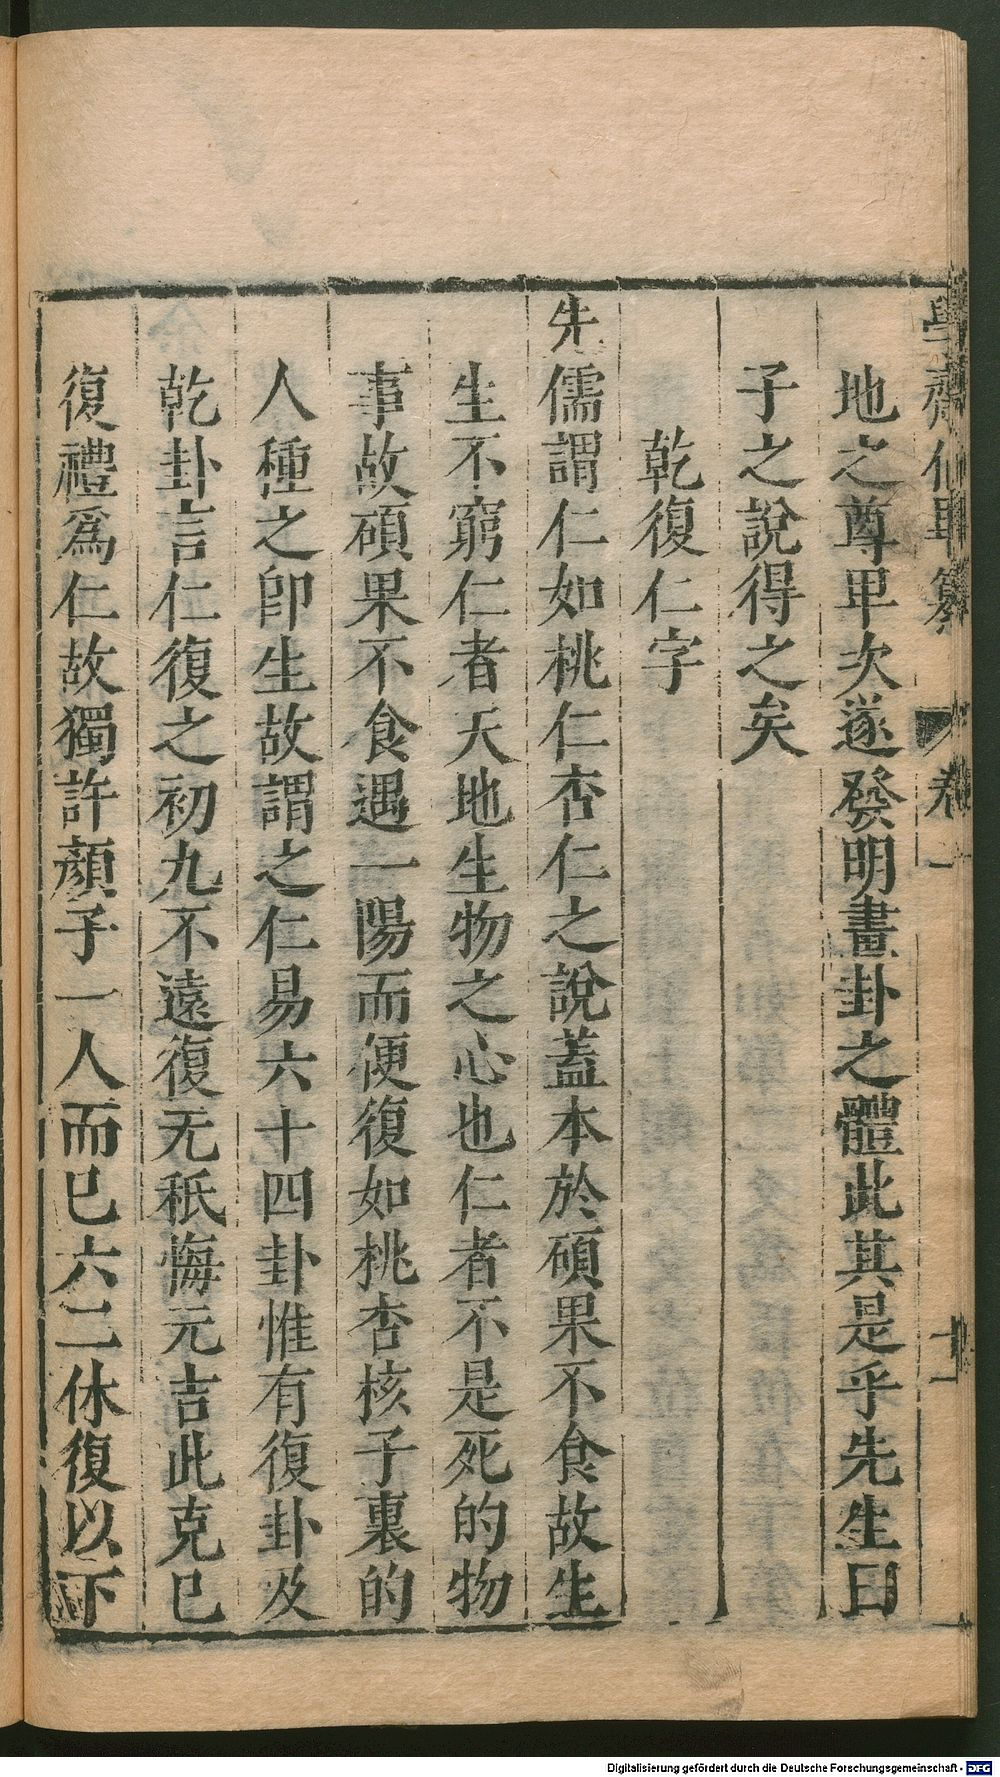 學齋佔畢纂 卷一 十一
地之尊卑次遂發明畫卦之體此其是乎先生曰
子之說得之矣
乾復仁字
先儒謂仁如桃仁杏仁之說蓋本於碩果不食故生
生不窮仁者天地生物之心也仁者不是死的物
事故碩果不食遇一陽而便復如桃杏核子裏的
人種之卽生故謂之仁易六十四卦惟有復卦及
乾卦言仁復之初九不遠復无秖悔元吉此克已
復禮爲仁故獨許顔子一人而已六二休復以下
Digitalisierung gefördert durch die Deutsche Forschungsgemeinschaft - DFG